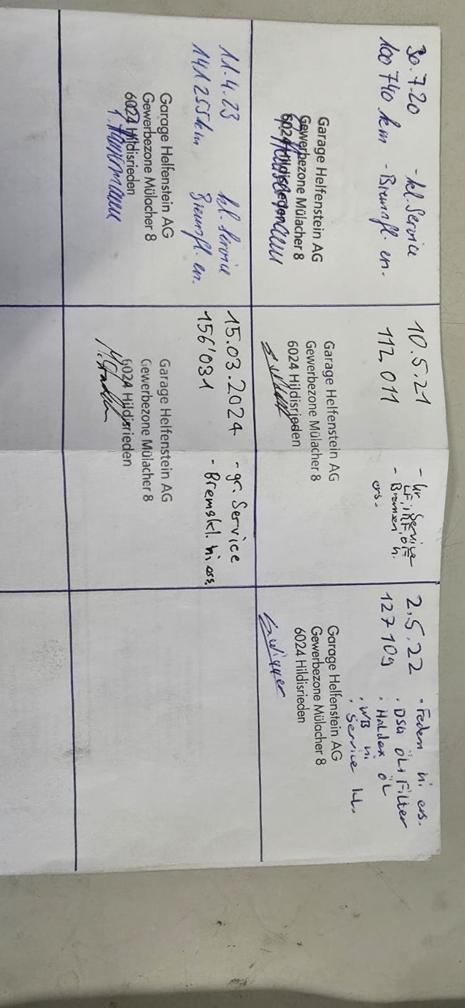 30.7.20 - kl. Service
100740 km - Bremsfl. en.
Garage Helfenstein AG
Gewerbezone Mülacher 8
6024 Hildisrieden
10.5.21
112 011
- Gr. Service
LF, IRF, ÖF
- Bremsen h.
ers.
Garage Helfenstein AG
Gewerbezone Mülacher 8
6024 Hildisrieden
2.5.22
127109
• Federn hi ers.
• DSG Öl + Filter
• Haldex Öl
• WB hi
• Service kl.
Garage Helfenstein AG
Gewerbezone Mülacher 8
6024 Hildisrieden
11.4.23 kl. Service
141255km Bremsfl. en.
Garage Helfenstein AG
Gewerbezone Mülacher 8
6024 Hildisrieden
15.03.2024 - gr. Service
156'031 - Bremskl. hi ers.
Garage Helfenstein AG
Gewerbezone Mülacher 8
6024 Hildisrieden